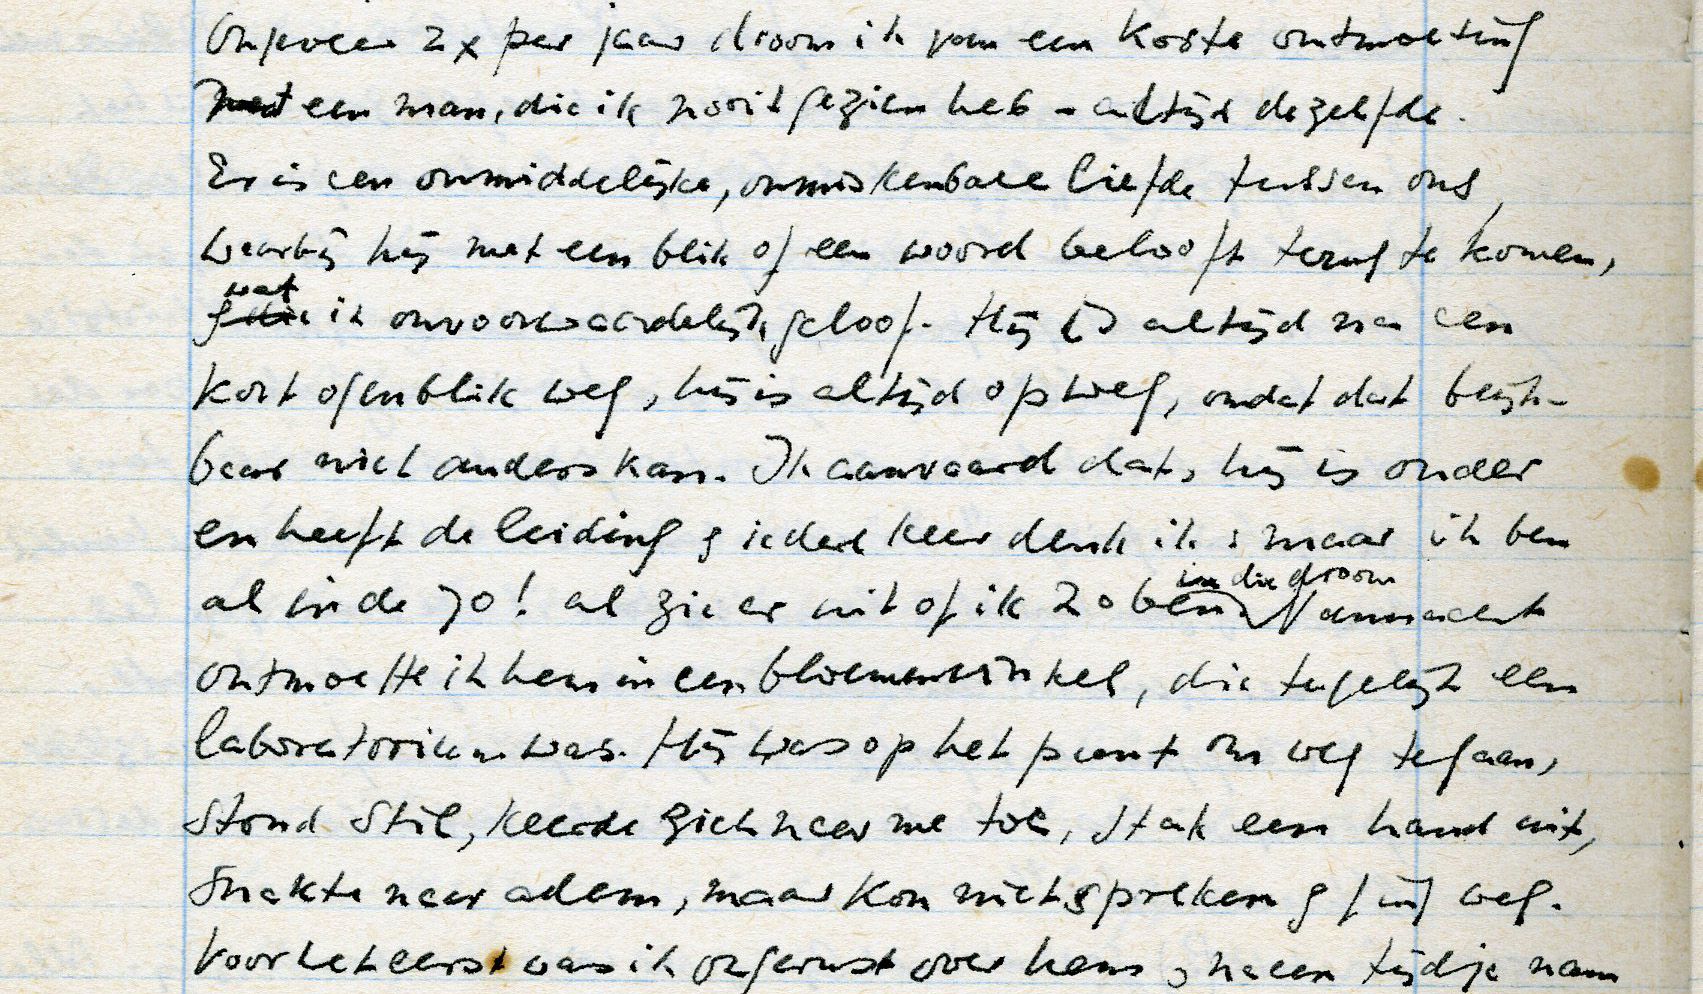 Ongeveer 2x per jaar droom ik van een korte ontmoeting
met een man, die ik nooit gezien heb – altijd dezelfde.
Er is een onmiddelijke, onmiskenbare liefde tussen ons,
waarbij hij met een blik of een woord belooft terug te komen,
wat ik onvoorwaardelijk geloof. Hij is altijd na een
kort ogenblik weg, hij is altijd op weg, omdat dat blijk-
baar niet anders kan. Ik aanvaard dat, hij is ouder
en heeft de leiding & iedere keer denk ik: maar ik ben
al in de 70! al zie er uit of ik 20 ben in die droom Vannacht
ontmoette ik hem in een bloemenwinkel, die tegelijk een
laboratorium was. Hij was op het punt om weg te gaan,
stond stil, keerde zich naar me toe, stak een hand uit,
snakte naar adem, maar kon niet spreken & ging weg.
Voor het eerst was ik ongerust over hem & na een tijdje nam